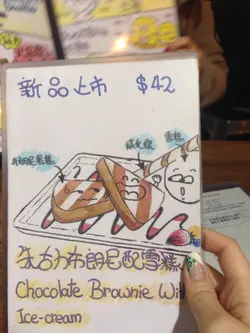 新品上市 $42
威化條
雪糕
布朗尼蛋糕
朱古力布朗尼配雪糕
Chocolate Brownie Wi
Ice-cream